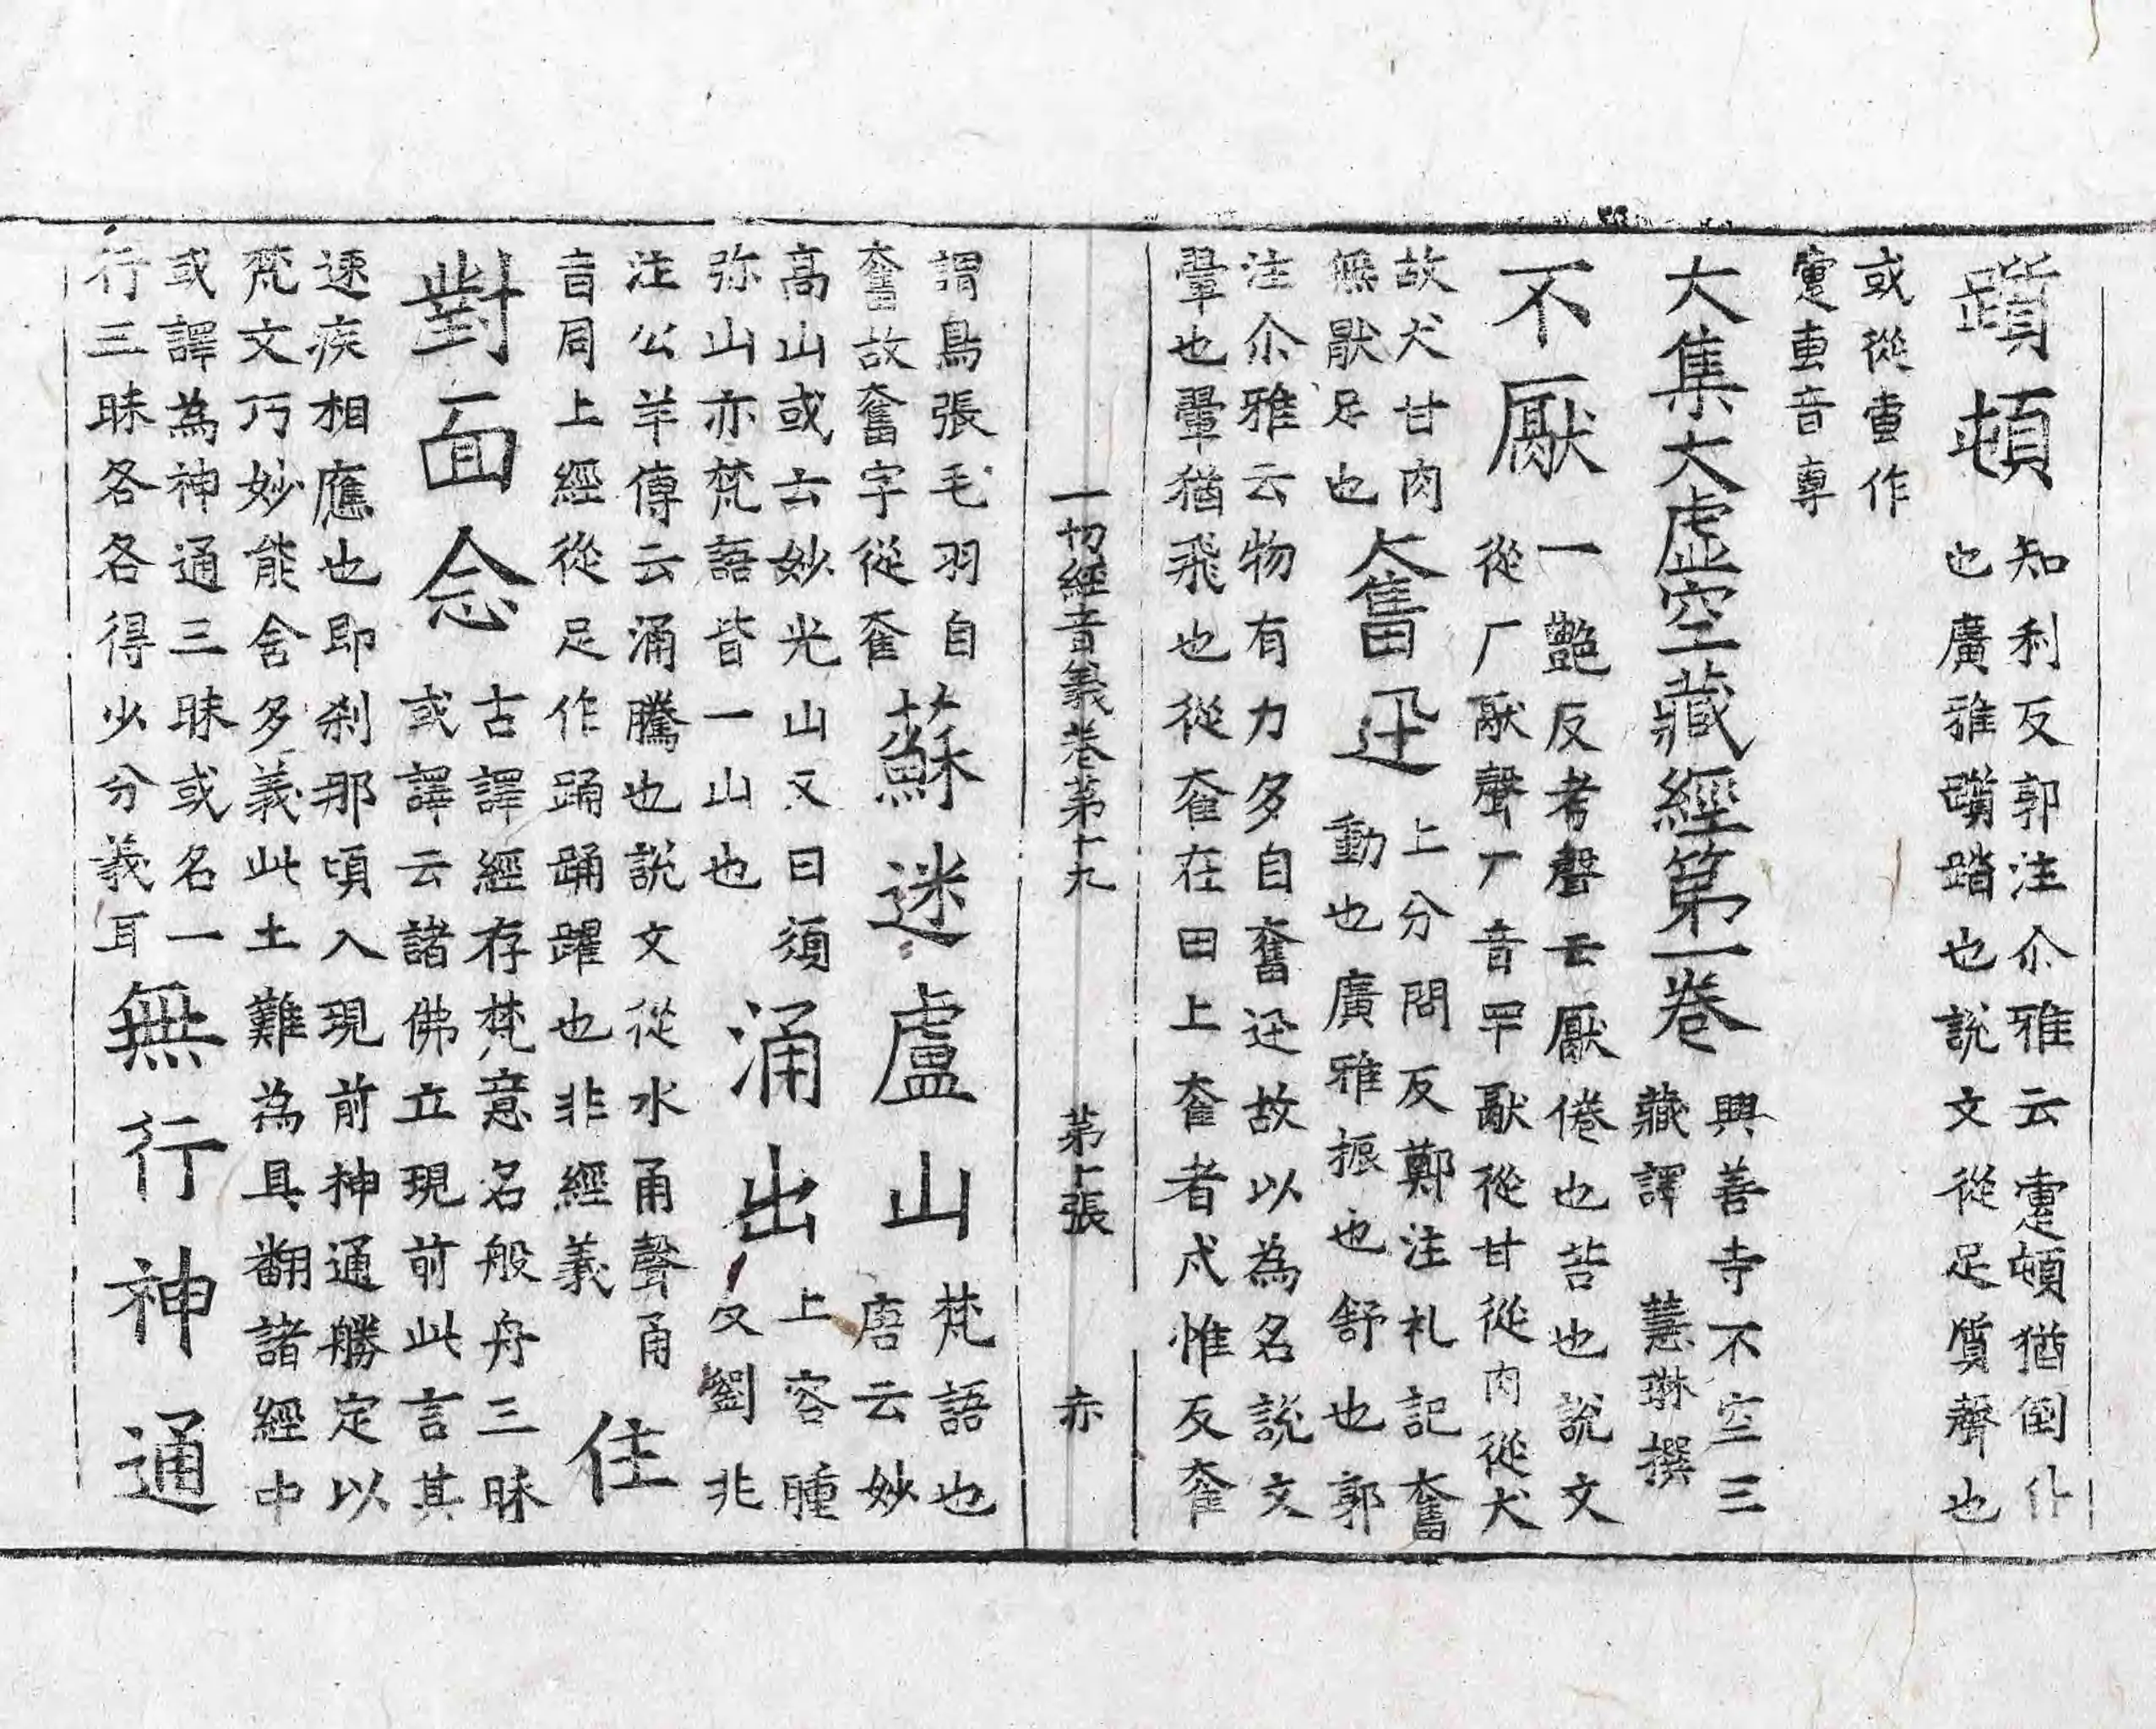 躓頓 知利反郭注尒雅云疐頓猶倒仆
也廣雅躓踏也說文從足質聲也
或從叀作
疐叀音專
大集大虛空藏經第一卷 興善寺不空三
藏譯 慧琳撰
不厭 一艶反考聲云厭倦也苦也說文
從厂猒聲厂音罕猒從甘從肉從犬
故犬甘肉
無猒足也
奮迅 上分問反鄭注礼記奮
動也廣雅振也舒也郭
注尒雅云物有力多自奮迅故以為名說文
翬也翬猶飛也從奞在田上奞者戍惟反奞
一切經音義卷第十九 第十張 赤
謂鳥張毛羽自
奮故奮字從奞
蘇迷盧山 梵語也
唐云妙
高山或云妙光山又曰須
弥山亦梵語皆一山也
涌出 上容腫
反劉兆
注公羊傳云涌騰也說文從水甬聲甬
音同上經從足作踊踊躍也非經義
住
對面念 古譯經存梵意名般舟三昧
或譯云諸佛立現前此言其
速疾相應也即刹那頃入現前神通勝定以
梵文巧妙能含多義此土難為具翻諸經中
或譯為神通三昧或名一
行三昧各各得少分義耳
無行神通